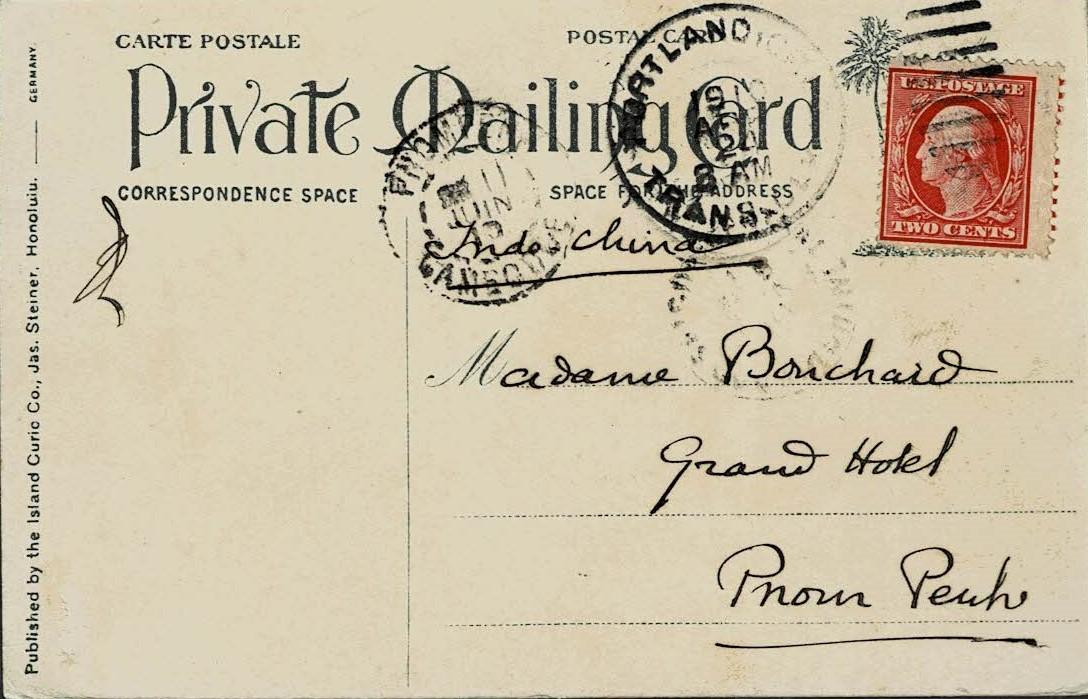 CARTE POSTALE
POSTAL CARD
Private Mailing Card
CORRESPONDENCE SPACE
SPACE FOR THE ADDRESS
U.S. POSTAGE
TWO CENTS
PORTLAND
AM
TRANS
11
JUIN
CAMBODGE
Indo China
Madame Bouchard
Grand Hotel
Pnom Penh
Published by the Island Curio Co., Jas. Steiner, Honolulu. — GERMANY.